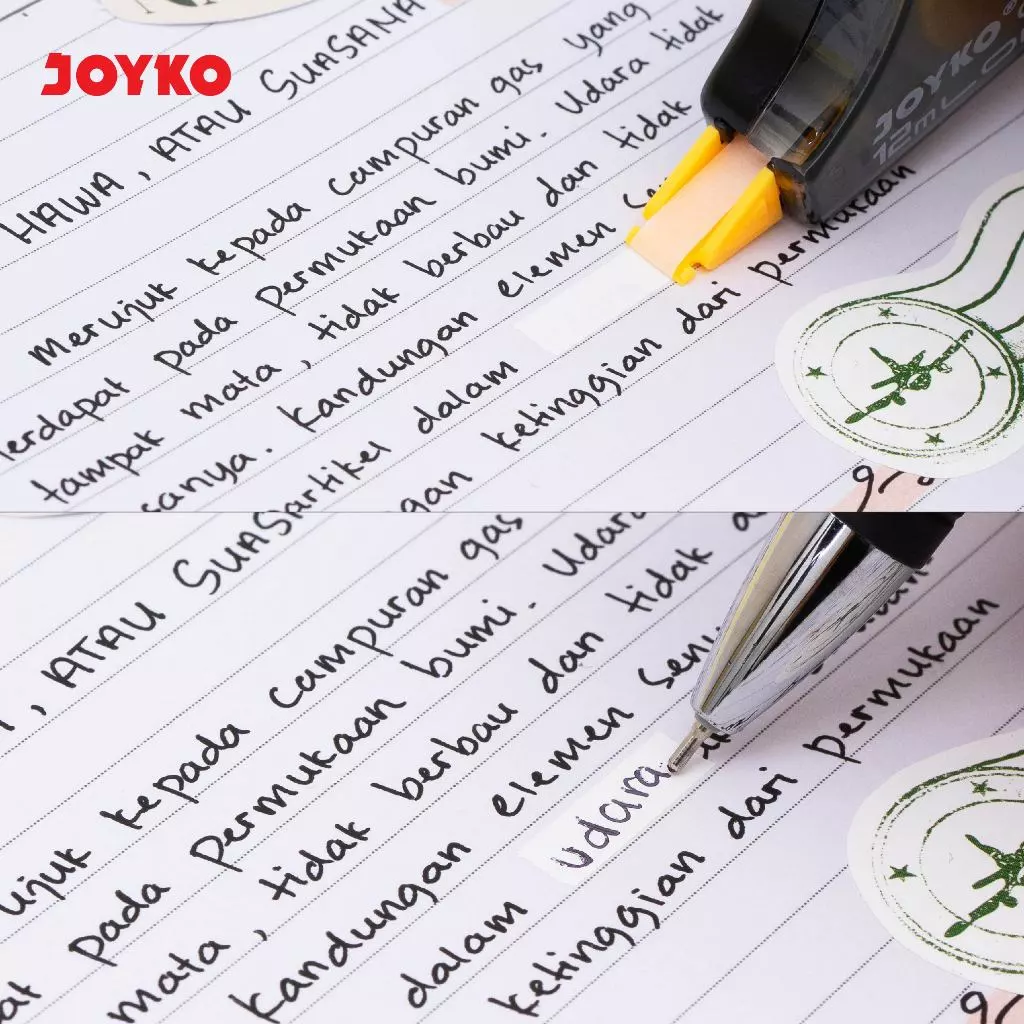 JOYKO
HAWA, ATAU SUASANA
Merujuk kepada campuran gas yang
terdapat pada permukaan bumi. Udara tidak
tampak mata, tidak berbau dan tidak
sanya. Kandungan elemen
artikel dalam
gan ketinggian dari permukaan
JOYKO
12m
, ATAU SUAS
ujuk kepada campuran gas
pada permukaan bumi. Udara
mata, tidak berbau dan tidak
kandungan elemen
dalam udara
ketinggian dari permukaan